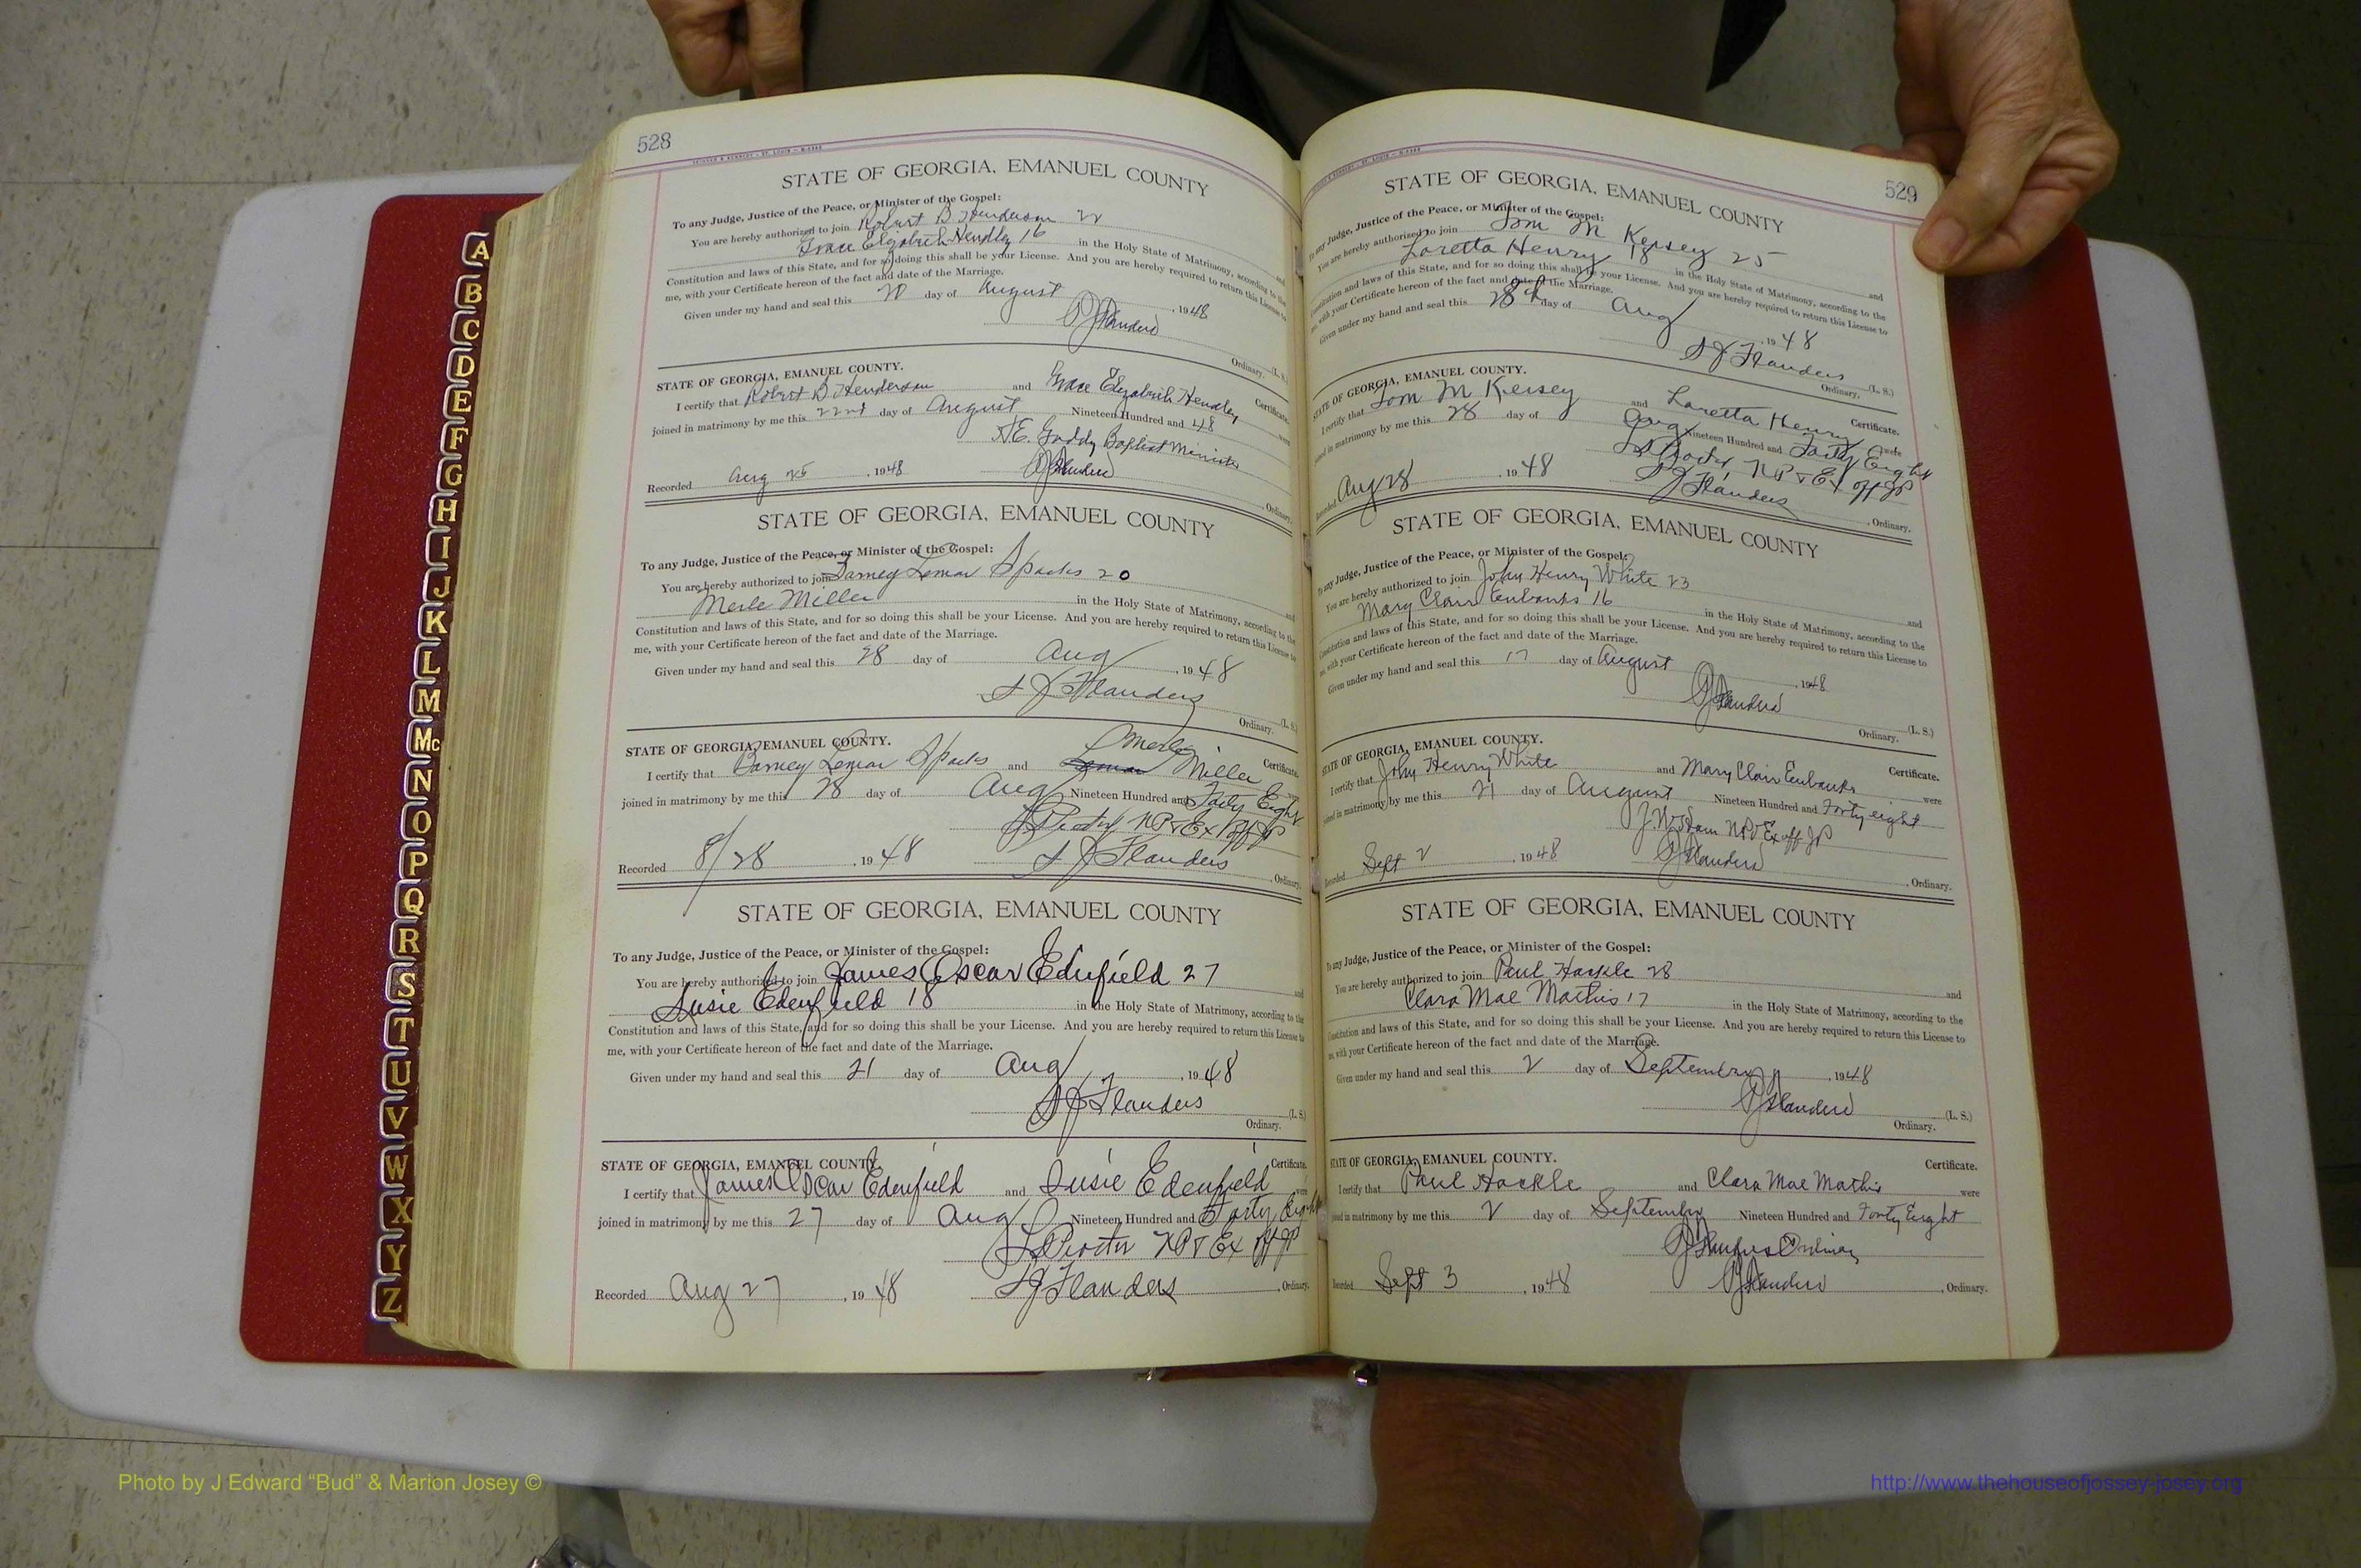 528
STATE OF GEORGIA, EMANUEL COUNTY
To any Judge, Justice of the Peace, or Minister of the Gospel:
You are hereby authorized to join Robert B Henderson 22
Grace Elizabeth Hendley 16 in the Holy State of Matrimony, according to the
Constitution and laws of this State, and for so doing this shall be your License. And you are hereby required to return this License to
me, with your Certificate hereon of the fact and date of the Marriage.
Given under my hand and seal this 20 day of August, 1948
Flanders
Ordinary. (L. S.)
STATE OF GEORGIA, EMANUEL COUNTY.
Certificate.
I certify that Robert B Henderson and Grace Elizabeth Hendley were
joined in matrimony by me this 22nd day of August Nineteen Hundred and 48
Gaddy Baptist Minister
Recorded Aug 25, 1948 Flanders, Ordinary.
STATE OF GEORGIA, EMANUEL COUNTY
To any Judge, Justice of the Peace, or Minister of the Gospel:
You are hereby authorized to join Barney Lemar Sparks 20 and
Merle Miller in the Holy State of Matrimony, according to the
Constitution and laws of this State, and for so doing this shall be your License. And you are hereby required to return this License to
me, with your Certificate hereon of the fact and date of the Marriage.
Given under my hand and seal this 28 day of Aug, 1948
Flanders
Ordinary. (L. S.)
STATE OF GEORGIA, EMANUEL COUNTY.
Certificate.
I certify that Barney Lemar Sparks and Merle Miller were
joined in matrimony by me this 28 day of Aug Nineteen Hundred and Forty Eight
NP & Ex Off JP
Recorded 8/28, 1948 Flanders, Ordinary.
STATE OF GEORGIA, EMANUEL COUNTY
To any Judge, Justice of the Peace, or Minister of the Gospel:
You are hereby authorized to join James Oscar Edenfield 27 and
Susie Edenfield 18 in the Holy State of Matrimony, according to the
Constitution and laws of this State, and for so doing this shall be your License. And you are hereby required to return this License to
me, with your Certificate hereon of the fact and date of the Marriage.
Given under my hand and seal this 21 day of Aug, 1948
Flanders (L. S.)
Ordinary.
STATE OF GEORGIA, EMANUEL COUNTY.
Certificate.
I certify that James Oscar Edenfield and Susie Edenfield were
joined in matrimony by me this 27 day of Aug Nineteen Hundred and Forty Eight
Proctor NP & Ex Off JP
Recorded Aug 27, 1948 Flanders, Ordinary.
529
STATE OF GEORGIA, EMANUEL COUNTY
To any Judge, Justice of the Peace, or Minister of the Gospel:
You are hereby authorized to join Tom M Kersey 25 and
Loretta Henry 18 in the Holy State of Matrimony, according to the
Constitution and laws of this State, and for so doing this shall be your License. And you are hereby required to return this License to
me, with your Certificate hereon of the fact and date of the Marriage.
Given under my hand and seal this 28 day of Aug, 1948
Flanders (L. S.)
Ordinary.
STATE OF GEORGIA, EMANUEL COUNTY.
Certificate.
I certify that Tom M Kersey and Loretta Henry were
joined in matrimony by me this 28 day of Aug Nineteen Hundred and Forty Eight
NP & Ex off JP
Recorded Aug 28, 1948 Flanders, Ordinary.
STATE OF GEORGIA, EMANUEL COUNTY
To any Judge, Justice of the Peace, or Minister of the Gospel:
You are hereby authorized to join John Henry White 23 and
Mary Clair Eubanks 16 in the Holy State of Matrimony, according to the
Constitution and laws of this State, and for so doing this shall be your License. And you are hereby required to return this License to
me, with your Certificate hereon of the fact and date of the Marriage.
Given under my hand and seal this 17 day of August, 1948
Flanders (L. S.)
Ordinary.
STATE OF GEORGIA, EMANUEL COUNTY.
Certificate.
I certify that John Henry White and Mary Clair Eubanks were
joined in matrimony by me this 21 day of August Nineteen Hundred and Forty eight
NP & Ex off JP
Recorded Sept 2, 1948 Flanders, Ordinary.
STATE OF GEORGIA, EMANUEL COUNTY
To any Judge, Justice of the Peace, or Minister of the Gospel:
You are hereby authorized to join Paul Hackle 28 and
Clara Mae Mathis 17 in the Holy State of Matrimony, according to the
Constitution and laws of this State, and for so doing this shall be your License. And you are hereby required to return this License to
me, with your Certificate hereon of the fact and date of the Marriage.
Given under my hand and seal this 2 day of September, 1948
Flanders (L. S.)
Ordinary.
STATE OF GEORGIA, EMANUEL COUNTY.
Certificate.
I certify that Paul Hackle and Clara Mae Mathis were
joined in matrimony by me this 2 day of September Nineteen Hundred and Forty Eight
Flanders Ordinary
Recorded Sept 3, 1948 Flanders, Ordinary.
A
B
C
D
E
F
G
H
I
J
K
L
M
Mc
N
O
P
Q
R
S
T
U
V
W
X
Y
Z
Photo by J Edward “Bud” & Marion Josey ©
http://www.thehouseofjossey-josey.org